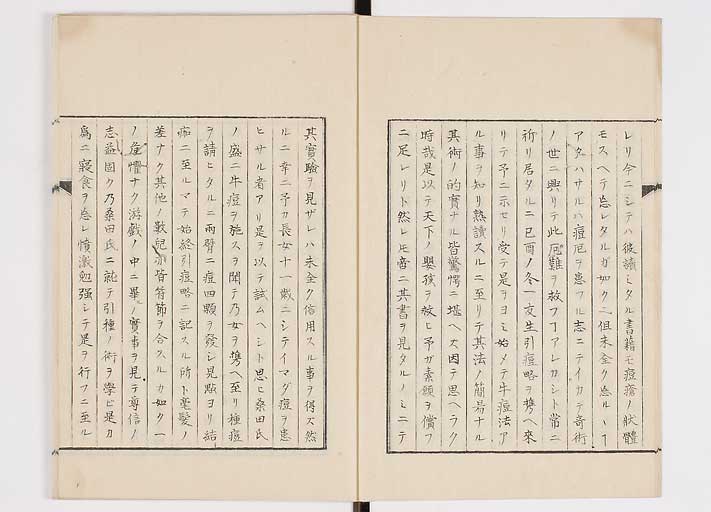 レリ今ニシテハ彼讀ミタル書籍モ痘瘡ノ狀體
モスヘテ忘レタルガ如クニ但未全ク忘ルヽヿ
アタハサルハ痘厄ヲ患フル志ニテイカテ奇術
ノ世ニ興リテ此厄難ヲ救フヿアレカシト常ニ
祈リ居タルニ己酉ノ冬一友生引痘略ヲ携ヘ來
リテ予ニ示セリ受テ是ヲヨミ始メテ牛痘法ア
ル事ヲ知リ熟讀スルニ至リテ其法ノ簡易ナル
其術ノ的實ナル皆驚愕ニ堪ヘス因テ思ヘラク
時哉是以テ天下ノ嬰孩ヲ救ヒ予ガ素願ヲ償フ
ニ足レリト然レ𪜈啻ニ其書ヲ見タルノミニテ
其實驗ヲ見ザレハ未全ク信用スル事ヲ得ス然
ルニ幸ニ予カ長女十一歲ニシテイマダ痘ヲ患
ヒサル者アリ是ヲ以テ試ムヘシト思ヒ桑田氏
ノ盛ニ牛痘ヲ施スヲ聞テ乃女ヲ携ヘ至リ種痘
ヲ請ヒタルニ兩臂ニ痘四顆ヲ發シ見點ヨリ結
痂ニ至ルマテ始終引痘略ニ記スル所ト毫髮ノ
差ナク其他ノ數兒亦皆符節ヲ合スルカ如ク一
ノ危懼ナク游戲ノ中ニ畢ノ實事ヲ見テ尊信ノ
志益固ク乃桑田氏ニ就テ引種ノ術ヲ學ヒ是カ
爲ニ寢食ヲ忘レ憤激勉强シテ是ヲ行フニ至ル